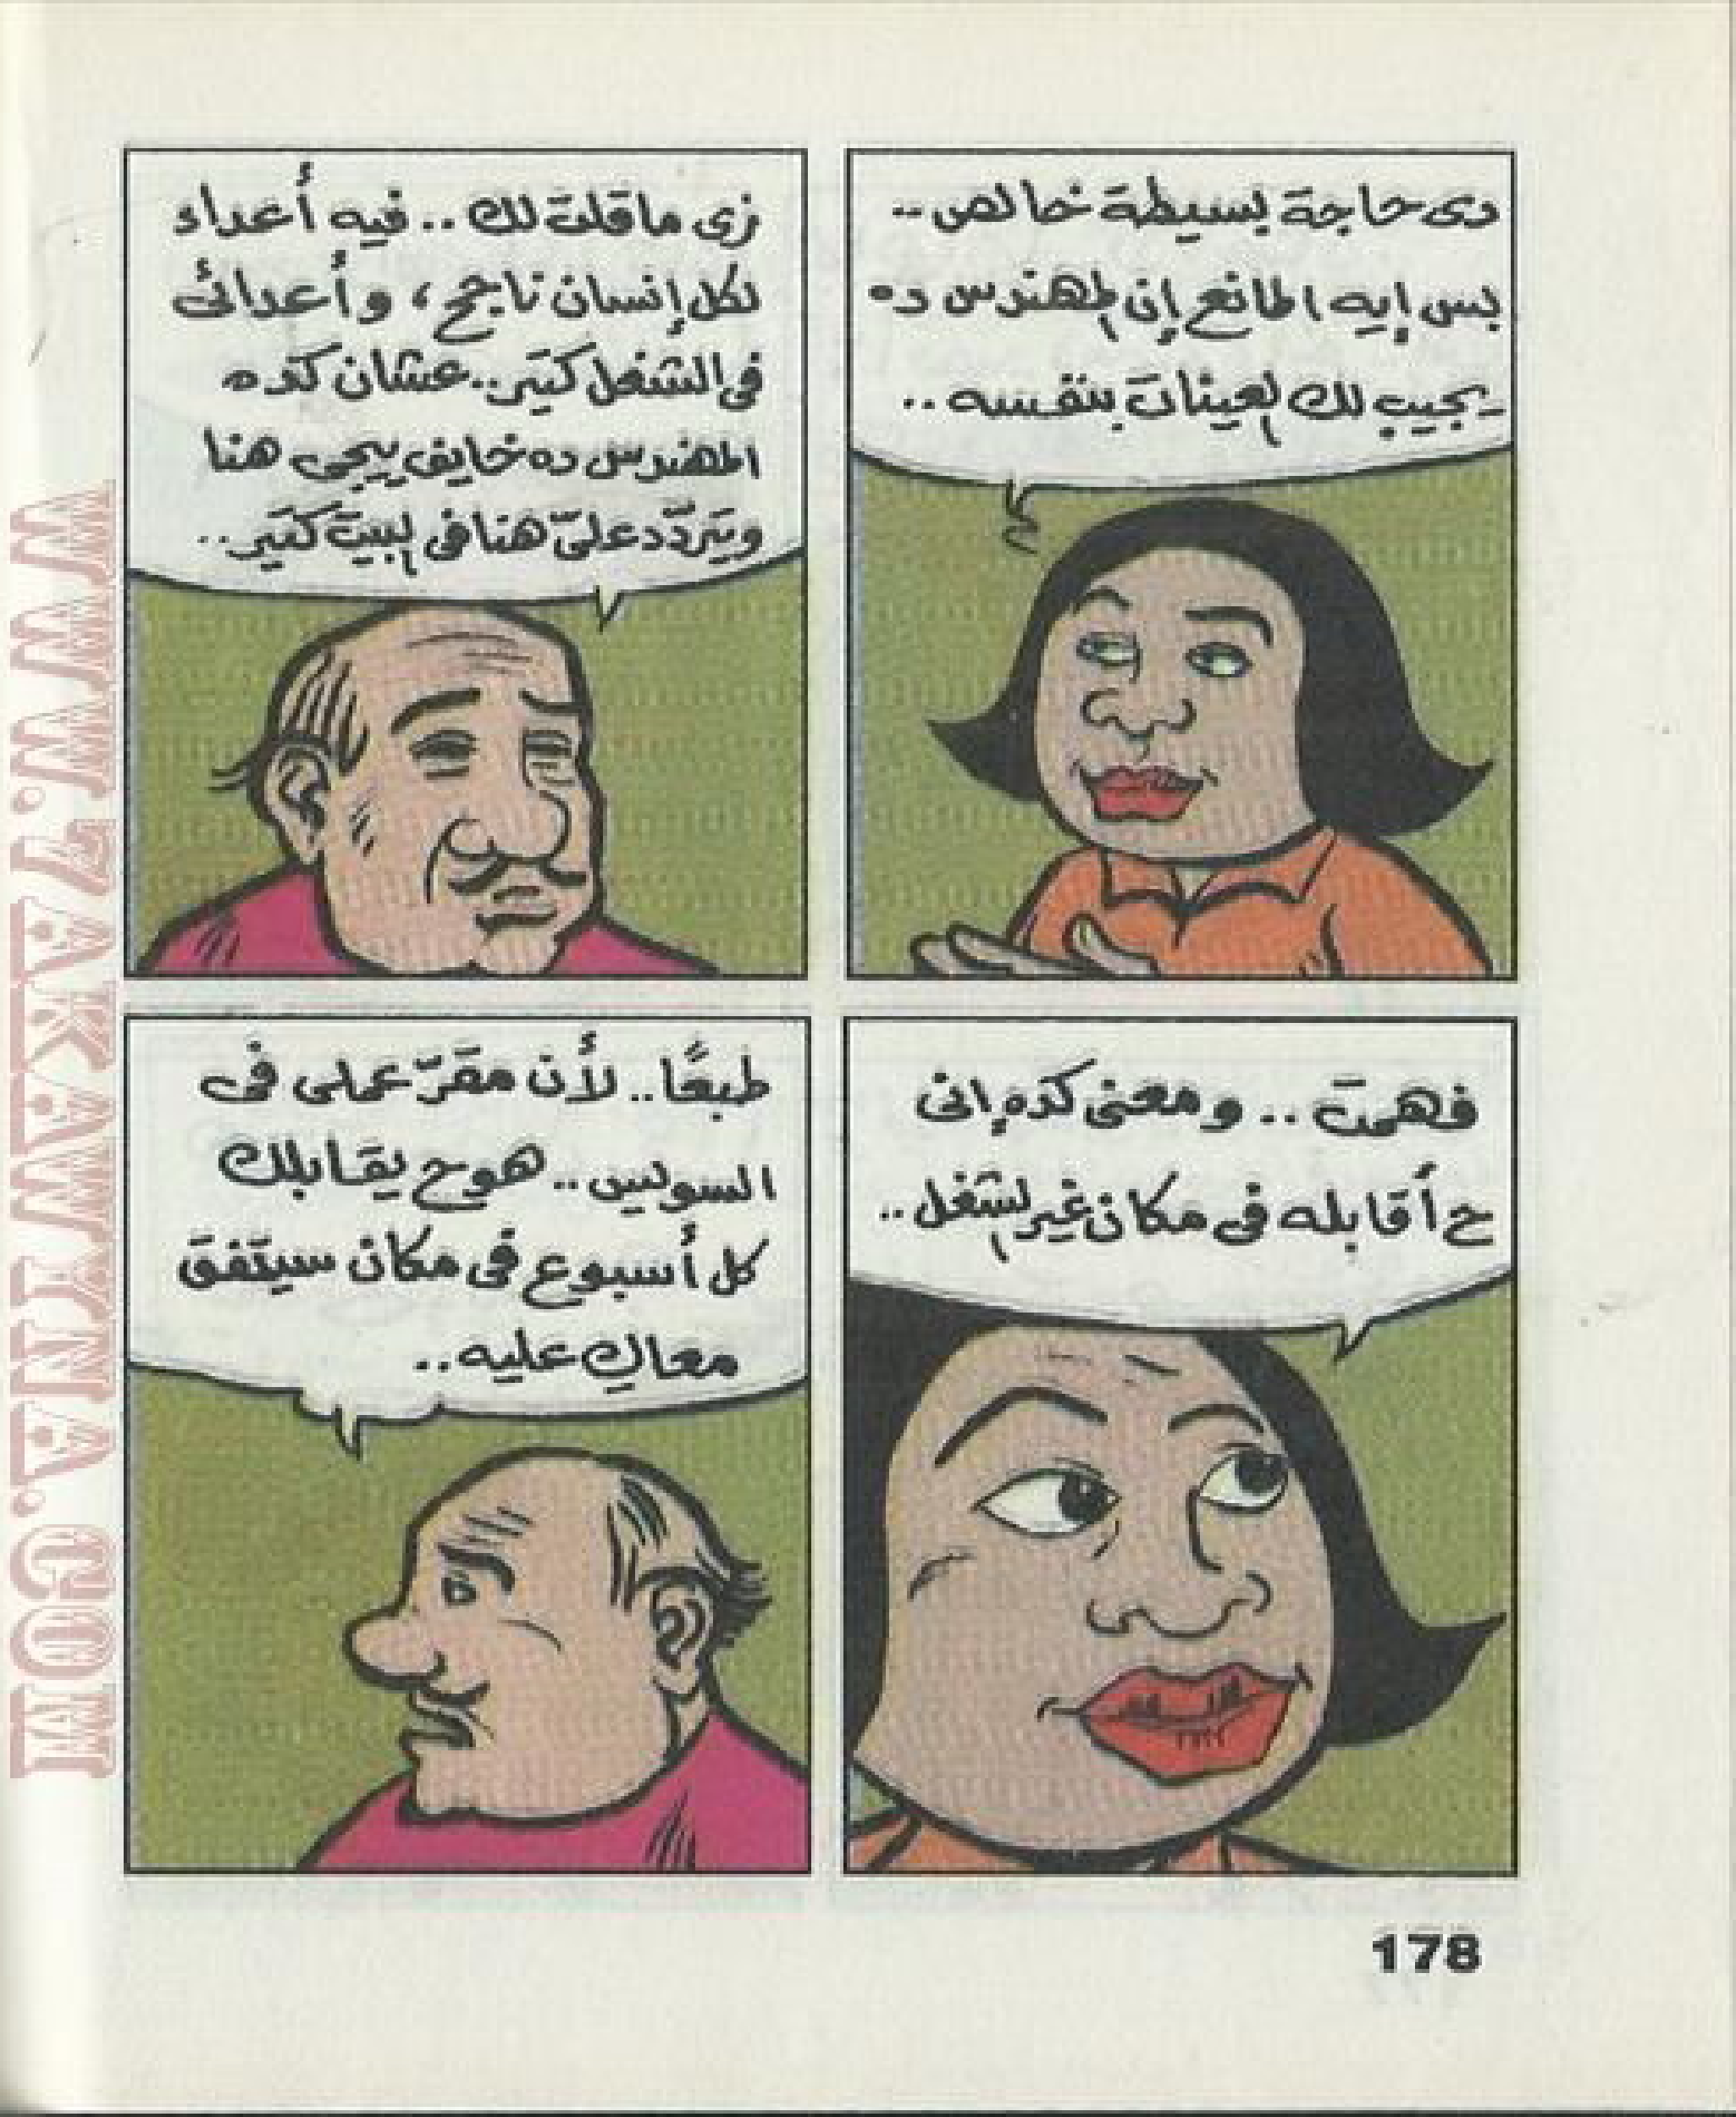 دى حاجة بسيطة خالص..
بس إيه المانع إن المهندس ده
يجيب لك العينات بنفسه..
زى ما قلت لك.. فيه أعداء
لكل إنسان ناجح، وأعدائى
فى الشغل كتير.. عشان كده
المهندس ده خايف ييجى هنا
ويتردّد علىّ هنا فى البيت كتير..
فهمت.. ومعنى كده إنى
ح أقابله فى مكان غير الشغل..
طبعًا.. لأن مقرّ عملى فى
السويس.. هو ح يقابلك
كل أسبوع فى مكان سيتفق
معاكِ عليه..
178
WWW.TAKAWINA.COM